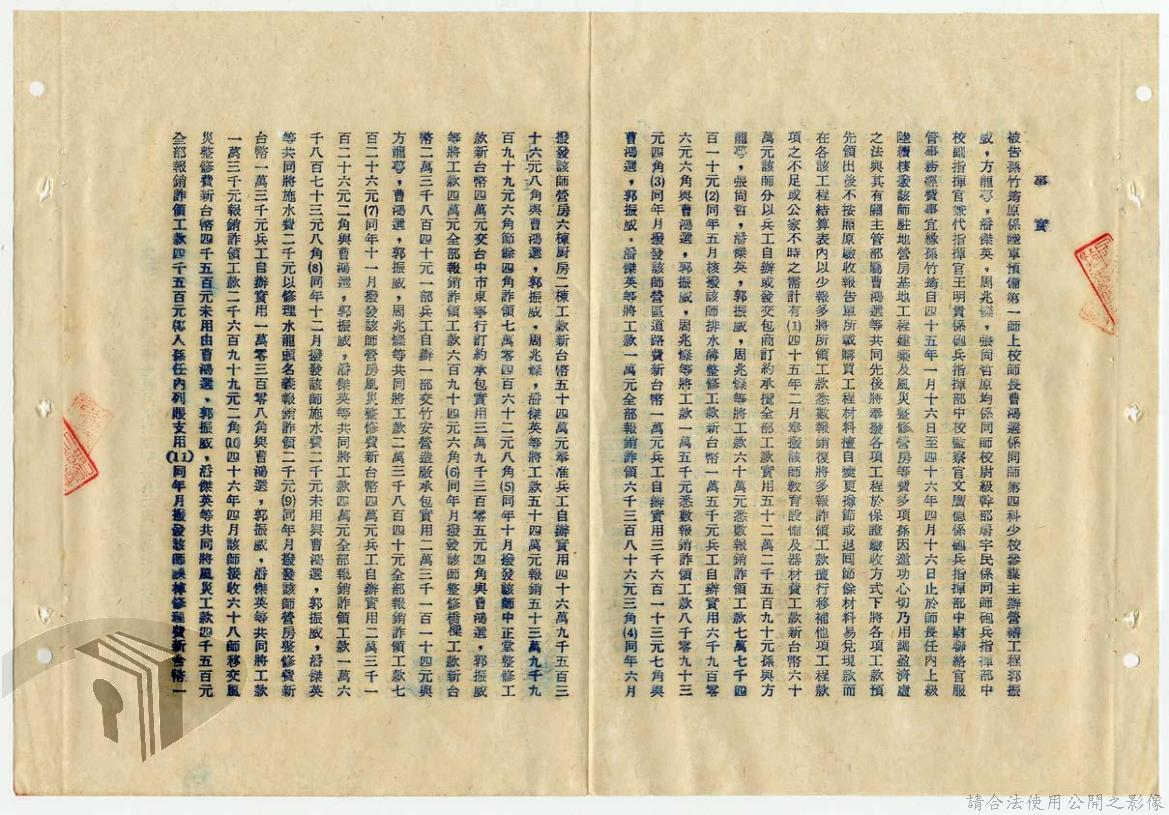 事實
被告孫竹筠原係陸軍預備第一師上校師長曹鴻選係同師第四科少校參謀主辦營繕工程郭振
威，方龍亭，潘傑英，周兆燦，張尙哲原均係同師校尉級幹部唐宇民係同師砲兵指揮部中
校副指揮官兼代指揮官王明貴係砲兵指揮部中校監察官文廣德係砲兵指揮部中尉聯絡官服
管事務經費事宜緣孫竹筠自四十五年一月十六日至四十六年四月十六日止於師長任內上級
陸續核發該師駐地營房基地工程建築及風災整修營房等費多項孫因邀功心切乃用調盈濟虛
之法與其有關主管部屬曹鴻選等共同先後將奉撥各項工程於保證驗收方式下將各項工款預
先領出後不按照原驗收報告單所載購買工程材料擅自變更撙節或退回節餘材料易兌現款而
在各該工程結算表內以少報多將所領工款悉數報銷復將多報詐領工款擅行移補他項工程款
項之不足或公家不時之需計有(1)四十五年二月奉撥該師教育設備及器材費工款新台幣六十
萬元該師分以兵工自辦或發交包商訂約承攬全部工款實用五十二萬二千五百九十元孫與方
龍亭，張尙哲，潘傑英，郭振威，周兆燦等將工款六十萬元悉數報銷詐領工款七萬七千四
百一十元(2)同年五月核撥該師排水溝整修工款新台幣一萬五千元兵工自辦實用六千九百零
六元六角與曹鴻選，郭振威，周兆燦等將工款一萬五千元悉數報銷詐領工款八千零九十三
元四角(3)同年月撥發該師營區道路費新台幣一萬元兵工自辦實用三千六百一十三元七角與
曹鴻選，郭振威，潘傑英等將工款一萬元全部報銷詐領六千三百八十六元三角(4)同年六月
撥發該師營房六棟厨房二棟工款新台幣五十四萬元奉准兵工自辦實用四十六萬九千五百三
十六元八角與曹鴻選，郭振威，周兆燦，潘傑英等將工款五十四萬元報銷五十三萬九千九
百九十九元六角節餘四角詐領七萬零四百六十二元八角(5)同年十月撥發該師中正堂整修工
款新台幣四萬元交台中市東寧行訂約承包實用三萬九千三百零五元四角與曹鴻選，郭振威
等將工款四萬元全部報銷詐領工款六百九十四元六角(6)同年月撥發該師整修橋樑工款新台
幣二萬三千八百四十元一部兵工自辦一部交竹安營造廠承包實用二萬三千一百一十四元與
方龍亭，曹鴻選，郭振威，周兆燦等共同將工款二萬三千八百四十元全部報銷詐領工款七
百二十六元(7)同年十一月撥發該師營房風災整修費新台幣四萬元兵工自辦實用二萬三千一
百二十六元二角與曹鴻選，郭振威，潘傑英等共同將工款四萬元全部報銷詐領工款一萬六
千八百七十三元八角(8)同年十二月撥發該師施水費二千元未用與曹鴻選，郭振威，潘傑英
等共同將施水費二千元以修理水龍頭名義報銷詐領二千元(9)同年月撥發該師營房整修費新
台幣一萬三千元兵工自辦實用一萬零三百零八角與曹鴻選，郭振威，潘傑英等共同將工款
一萬三千元報銷詐領工款二千六百九十九元二角(10)四十六年四月該師接收六十八師移交風
災整修費新台幣四千五百元未用由曹鴻選，郭振威，潘傑英等共同將風災工款四千五百元
全部報銷詐領工款四千五百元等人孫任內列賬支用(11)同年月撥發該師課椅修理費新台幣一
請合法使用公開之影像